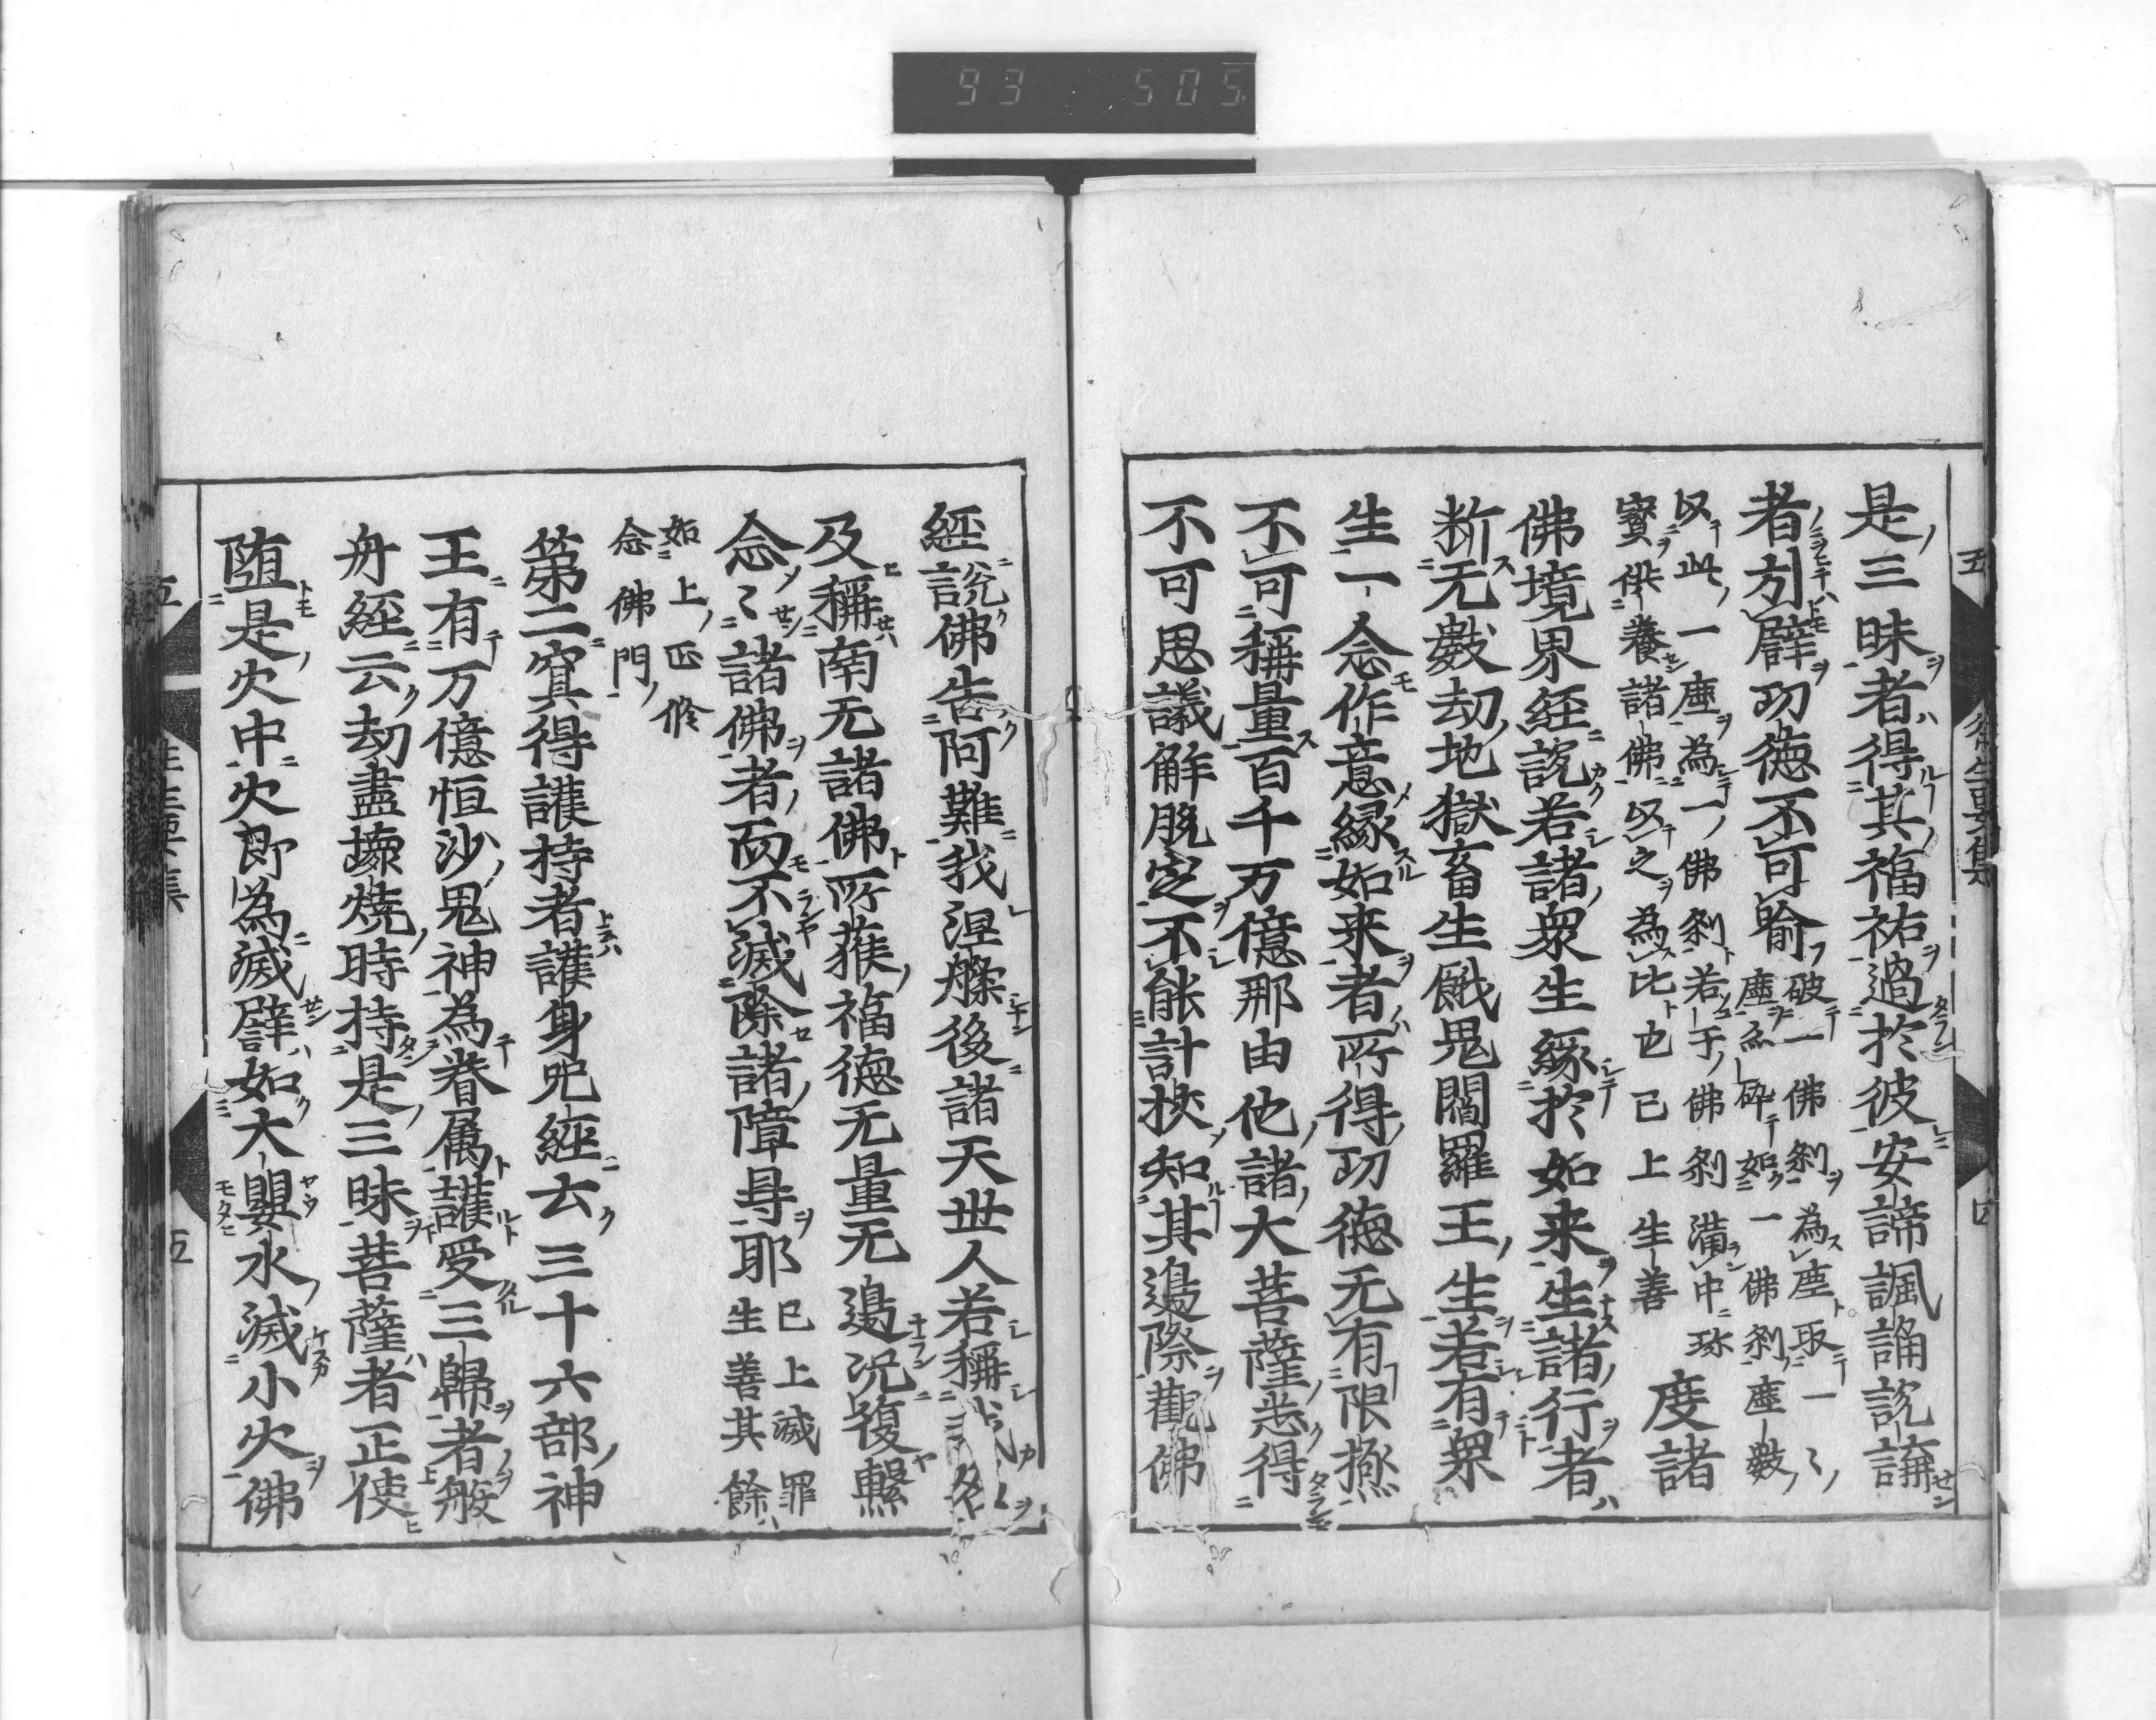 93 505
是三昧者得其福祐過於彼安諦諷誦説講
者引譬功徳不可喩
破一佛刹為塵取一〻
塵亦碎如一佛刹塵數
以此一塵為一佛刹若干佛刹滿中珎
寶供養諸佛以之為比也已上生善
度諸
佛境界經説若諸衆生縁於如来生諸行者
断无數劫地獄畜生餓鬼閻羅王生若有衆
生一念作意縁如来者所得功徳无有限極
不可稱量百千万億那由他諸大菩薩悉得
不可思議解脱定不能計挍知其邊際觀佛
經說佛告阿難我涅槃後諸天世人若稱我名
及稱南无諸佛所獲福徳无量无邊況復繫
念〻諸佛者而不滅除諸障㝵耶
已上滅罪
生善其餘
如上正修
念佛門
第二冥得護持者護身呪經云三十六部神
王有万億恒沙鬼神為眷属護受三歸者般
舟經云劫盡壊燒時持是三昧菩薩者正使
堕是火中火即為滅譬如大甖水滅小火佛
五
五